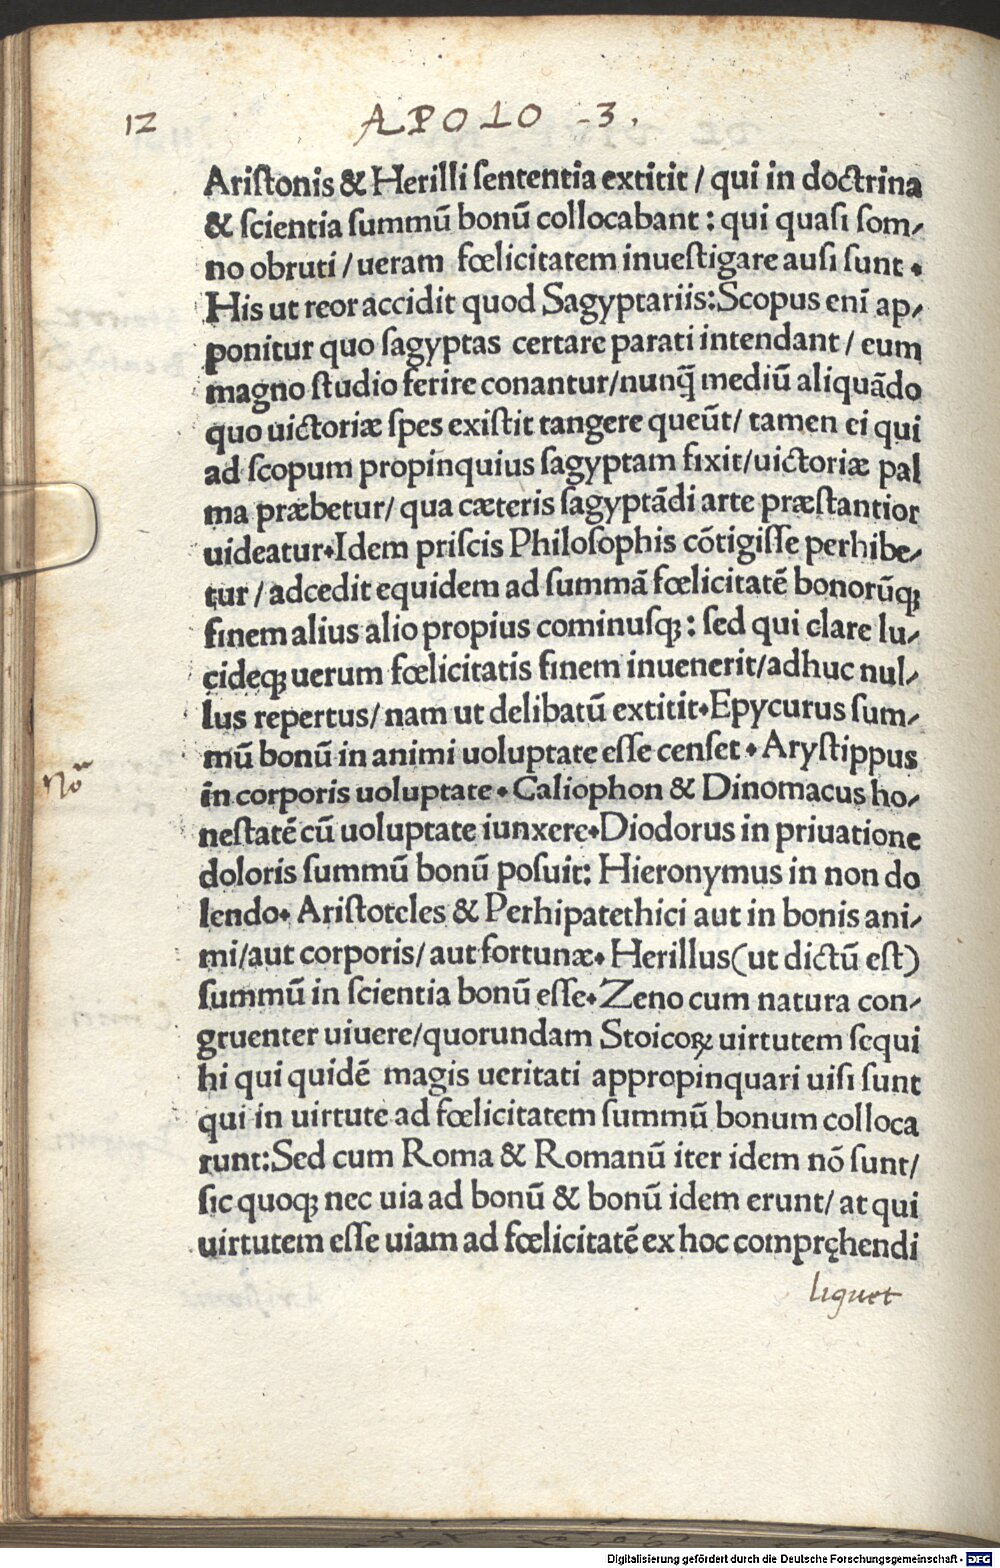 12 APOLO - 3.
Ariſtonis & Herilli ſententia extitit / qui in doctrina
& ſcientia ſummū bonū collocabant : qui quaſi ſom⸗
no obruti / ueram fœlicitatem inueſtigare auſi ſunt •
His ut reor accidit quod Sagyptariis:Scopus enī ap⸗
ponitur quo ſagyptas certare parati intendant / eum
magno ſtudio ferire conantur/nunq̄ mediū aliquādo
quo uictoriæ ſpes exiſtit tangere queūt/ tamen ei qui
ad ſcopum propinquius ſagyptam fixit/uictoriæ pal
ma præbetur/ qua cæteris ſagyptādi arte præſtantior
uideatur•Idem priſcis Philoſophis cōtigiſſe perhibe⸗
tur / adcedit equidem ad ſummā fœlicitatē bonorūqꝫ
finem alius alio propius cominuſqꝫ : ſed qui clare lu⸗
cideqꝫ uerum fœlicitatis finem inuenerit/adhuc nul⸗
lus repertus/ nam ut delibatū extitit•Epycurus ſum⸗
mū bonū in animi uoluptate eſſe cenſet • Aryſtippus
No᷈
in corporis uoluptate • Caliophon & Dinomacus ho⸗
neſtatē cū uoluptate iunxere•Diodorus in priuatione
doloris ſummū bonū poſuit: Hieronymus in non do
lendo• Ariſtoteles & Perhipatethici aut in bonis ani⸗
mi/aut corporis/ aut fortunæ• Herillus(ut dictū eſt)
ſummū in ſcientia bonū eſſe•Zeno cum natura con⸗
gruenter uiuere/quorundam Stoicoꝝ uirtutem ſequi
hi qui quidē magis ueritati appropinquari uiſi ſunt
qui in uirtute ad fœlicitatem ſummū bonum colloca
runt:Sed cum Roma & Romanū iter idem nō ſunt/
ſic quoqꝫ nec uia ad bonū & bonū idem erunt/ at qui
uirtutem eſſe uiam ad fœlicitatē ex hoc compręhendi
liquet
Digitalisierung gefördert durch die Deutsche Forschungsgemeinschaft - DFG